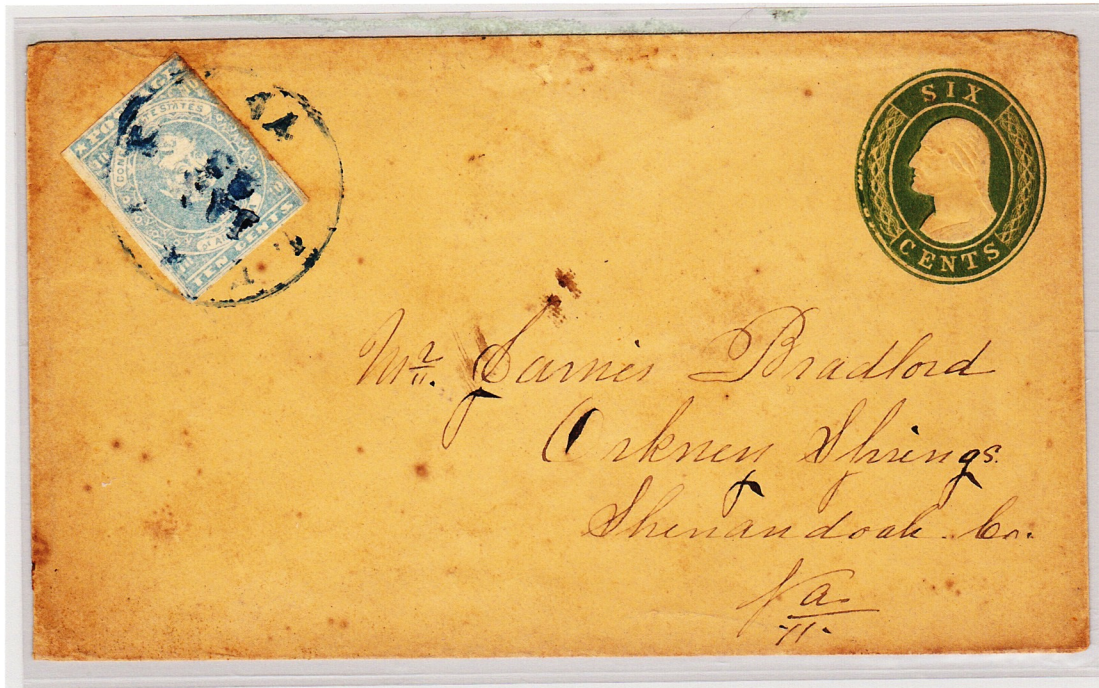 POSTAGE
CONFEDERATE STATES
OF AMERICA
TEN CENTS
10 10
10 10
SIX
CENTS
Mr. James Bradford
Orkney Springs.
Shenandoah Co.
Va